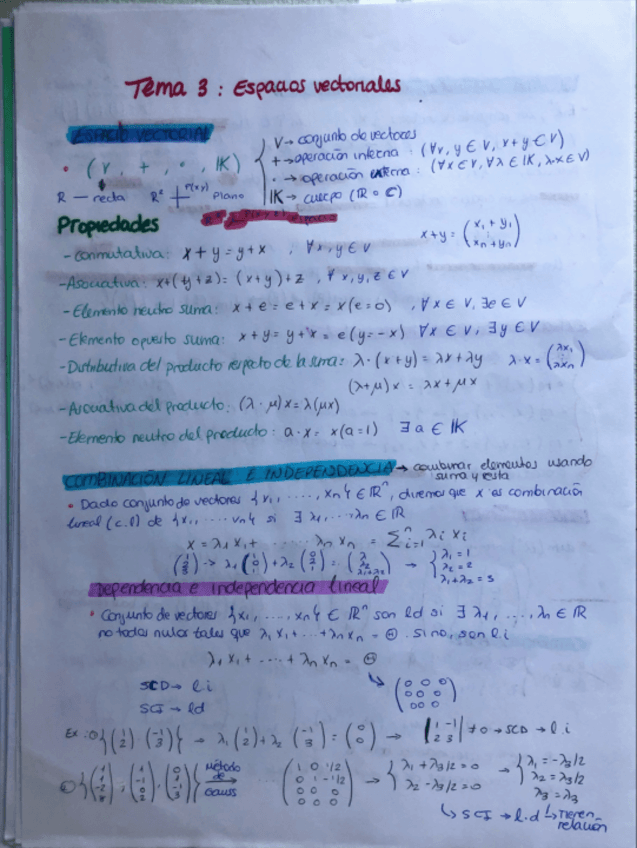 Tema 3 : Espacios vectoriales
ESPACIO VECTORIAL
• (V, +, ·, IK)
V → conjunto de vectores
+ → operación interna : (∀x, y ∈ V, x+y ∈ V)
· → operación externa : (∀x ∈ V, ∀λ ∈ IK, λ·x ∈ V)
IK → cuerpo (R o C)
R — recta R² P(x,y) plano
Propiedades
x+y = (x₁ + y₁ ⋮ xn + yn)
- Conmutativa: x + y = y + x , ∀x, y ∈ V
- Asociativa: x + (y + z) = (x + y) + z , ∀ x, y, z ∈ V
- Elemento neutro suma: x + e = e + x = x (e = 0) , ∀x ∈ V, ∃e ∈ V
- Elemento opuesto suma: x + y = y + x = e (y = -x) ∀x ∈ V, ∃y ∈ V
- Distributiva del producto respecto de la suma: λ·(x + y) = λx + λy λ·x = (λx₁ ⋮ λxn)
(λ+μ)x = λx + μx
- Asociativa del producto: (λ · μ)x = λ(μx)
- Elemento neutro del producto: a·x = x (a = 1) ∃a ∈ IK
COMBINACIÓN LINEAL E INDEPENDENCIA → combinar elementos usando
suma y resta
• Dado conjunto de vectores {x₁, ....., xn} ∈ IRⁿ, diremos que x es combinación
lineal (c.l) de {x₁, ..... vn} si ∃ λ₁, ..., λn ∈ IR
x = λ₁ x₁ + ...... λn xn = Σⁿᵢ₌₁ λi xi
(1 2 3) → λ₁ (1 0 1) + λ₂ (0 2 1) = → { λ₁ = 1
λ₂ = 2
λ₁ + λ₂ = 3
Dependencia e independencia lineal
• Conjunto de vectores {x₁, ...., xn} ∈ IRⁿ son ld si ∃ λ₁, ...., λn ∈ IR
no todos nulos tales que λ₁x₁ + ... + λnxn = Θ. sino, son l i
λ₁ x₁ + ..... + λn xn = Θ
↳ (0 0 0
0 0 0
0 0 0)
SCD → l i
SCI → ld
Ex: {(1 2) (-1 3)} → λ₁ (1 2) + λ₂ (-1 3) = (0 0) → |1 -1 2 3| ≠ 0 → SCD → l.i
Método
de
Gauss
(1 0 1/2
0 1 -1/2
0 0 0
0 0 0)
→ { λ₁ + λ₃/2 = 0
λ₂ - λ₃/2 = 0
→ { λ₁ = -λ₃/2
λ₂ = λ₃/2
λ₃ = λ₃
↳ SCI → l.d ↳ Tienen
relación